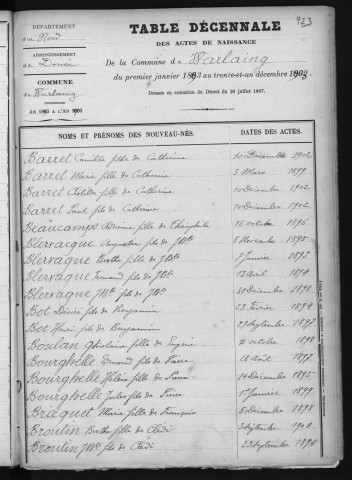 923
DÉPARTEMENT
du Nord
ARRONDISSEMENT
de Douai
COMMUNE
de Warlaing
TABLE DÉCENNALE
DES ACTES DE NAISSANCE
De la Commune de Warlaing
du premier janvier 1893 au trente-et-un décembre 1902.
Dressée en exécution du Décret du 20 juillet 1807.
NOMS ET PRÉNOMS DES NOUVEAU-NÉS. DATES DES ACTES.
Barret Camille fille de Catherine 10 Décembre 1902
Barret Marie fille de Catherine 5 Mars 1899
Barret Clotilde fille de Catherine 10 Décembre 1902
Barret Paul fils de Catherine 10 Décembre 1902
Beaucamps Adrienne fille de Théophile 15 octobre 1896
Blervacque Augustin fils de Jbte 8 Novembre 1895
Blervaque Berthe fille de Jbte 7 Janvier 1893
Blervaque Fernand fils de Jbte 13 avril 1894
Blervaque Jbte fils de Jbte 31 Décembre 1898
Bot Désiré fils de Benjamin 23 Février 1894
Bot Henri fils de Benjamin 29 Septembre 1897
Boulan Ghislaine fille de Eugène 2 octobre 1894
Bourghelle Edmond fils de Pierre 18 Août 1897
Bourghelle Hélène fille de Pierre 14 Décembre 1895
Bourghelle Jules fils de Pierre 1er Janvier 1899
Bricquet Marie fille de François 5 Décembre 1898
Broutin Berthe fille de Cléde Septembre 1901
Broutin Jbte fils de Cléde 23 Septembre 1894